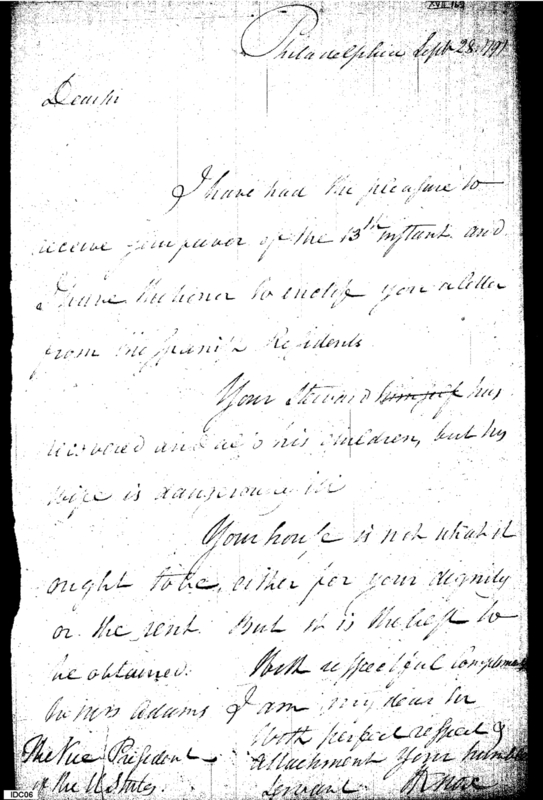 XVII 169
Philadelphia Sept 28. 1791
Dear sir
I have had the pleasure to
receive your favor of the 13th instant and
I have the honor to enclose you a letter
from the Spanish Residents
Your Steward himself has
recovered and also his children, but his
wife is dangerously ill
Your house is not what it
ought to be, either for your dignity
or the rent. But it is the best to
be obtained. With respectful Compliments
to Mrs Adams I am my dear Sir
with perfect respect &
attachment Your humble
Servant HKnox
The Vice President
of the U States.
IDC06